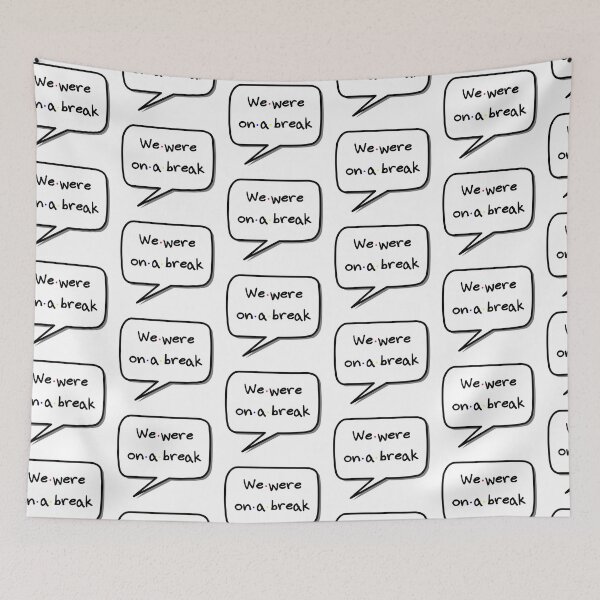 We·were
on·a break
We·were
on·a break
We·were
on·a break
We·were
on·a break
We·were
on·a break
We·were
on·a break
We·were
on·a break
We·were
on·a break
We·were
on·a break
We·were
on·a break
We·were
on·a break
We·were
on·a break
We·were
on·a break
We·were
on·a break
We·were
on·a break
We·were
on·a break
We·were
on·a break
We·were
on·a break
We·were
on·a break
We·were
on·a break
We·were
on·a break
We·were
on·a break
We·were
on·a break